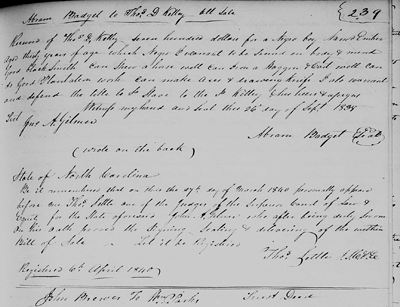 Abram Badget to Thos. D. Kelly Bill Sale
239
Received of Thos. D. Kelly seven hundred dollars for a Negro boy named
aged thirty years of age which Negro I warrant to be sound in body & mind
Good Blacksmith can Shoe a horse well can Iron a Waggon & Cart well can
do Good Plantation work can make Axes & drawing knife I do warrant
and defend the title to sd Slave to the sd Kelly & his heirs & assigns
Witness my hand and Seal this 26th day of Sept 1838
Test
Jno. A. Gilmer
Abram Badget Seal
(wrote on the back)
State of North Carolina
Be it remembered that on this the 27th day of March 1840 personally appeared
before me Thos. Settle one of the Judges of the Superior Court of Law &
Equity for the State aforesaid John A. Gilmer who after being duly sworn
on his oath proves the signing Sealing & delivering of the within
Bill of Sale Let it be Registered
Thos. Settle
Registered 6th April 1840
John Brower To Wm. Trust Deed